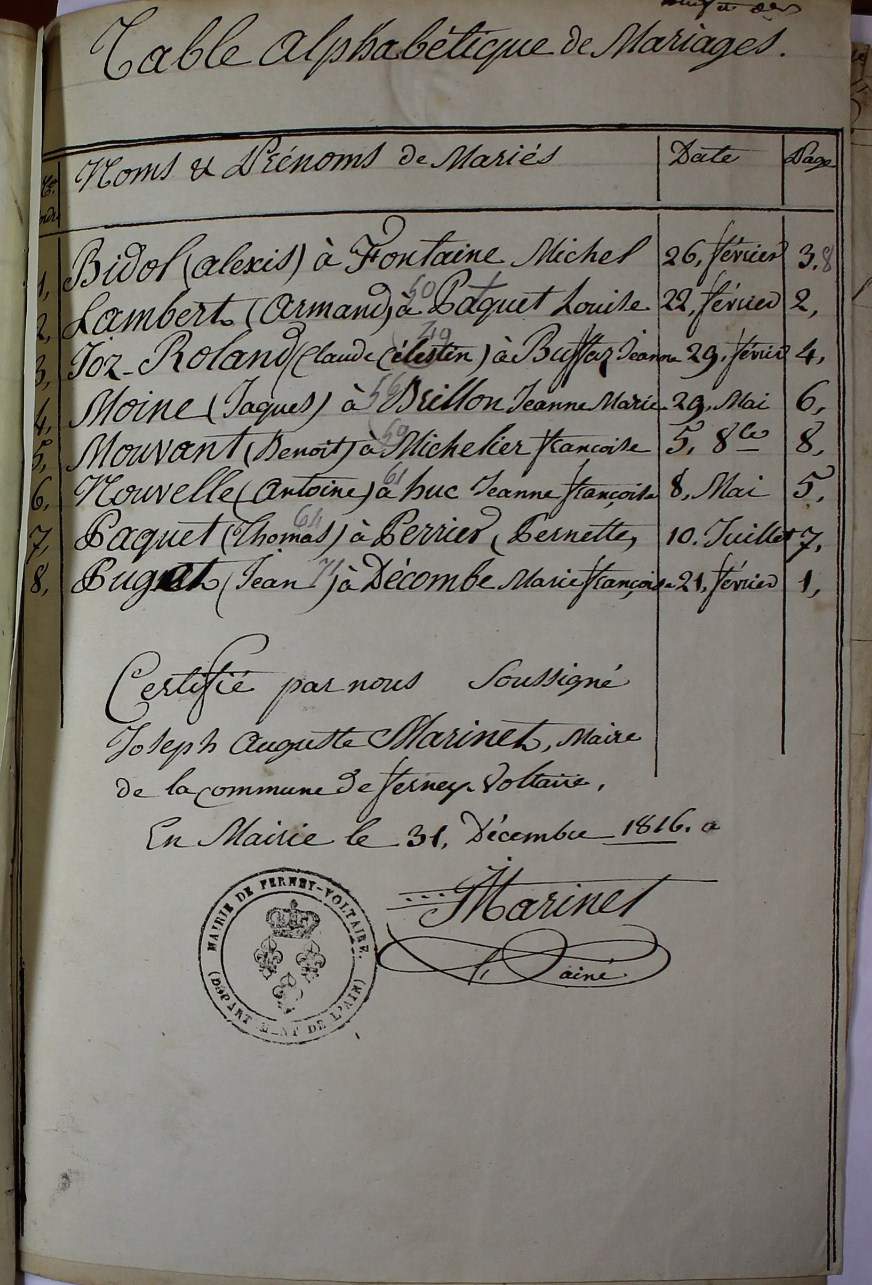 Table Alphabétique de Mariages.
Noms & Prénoms de Mariés Date Page
1, Bidol (alexis) à Fontaine Michel 26, février 3, 8
2, Lambert (Armand) à Paquet Louise 22, février 2,
3, Joz-Roland (Claude Célestin) à Buffaz Jeanne 29, février 4,
4, Moine (Jaques) à Brillon Jeanne Marie 29, Mai 6,
5, Mouvant (Benoit) à Michelier françoise 5, 8bre 8,
6, Nouvelle (Antoine) à huc Jeanne françoise 8, Mai 5,
7, Paquet (Thomas) à Perrier, Pernette, 10. Juillet 7,
8, (Jean) à Décombe Marie françoise 21, février 1,
Certifié par nous Soussigné
Joseph Auguste Marinet, Maire
de la commune de ferney Voltaire,
En Mairie le 31, Décembre 1816.
Marinet
ainé
MAIRIE DE FERNEY-VOLTAIRE.
(DÉPARTEMENT DE L'AIN)